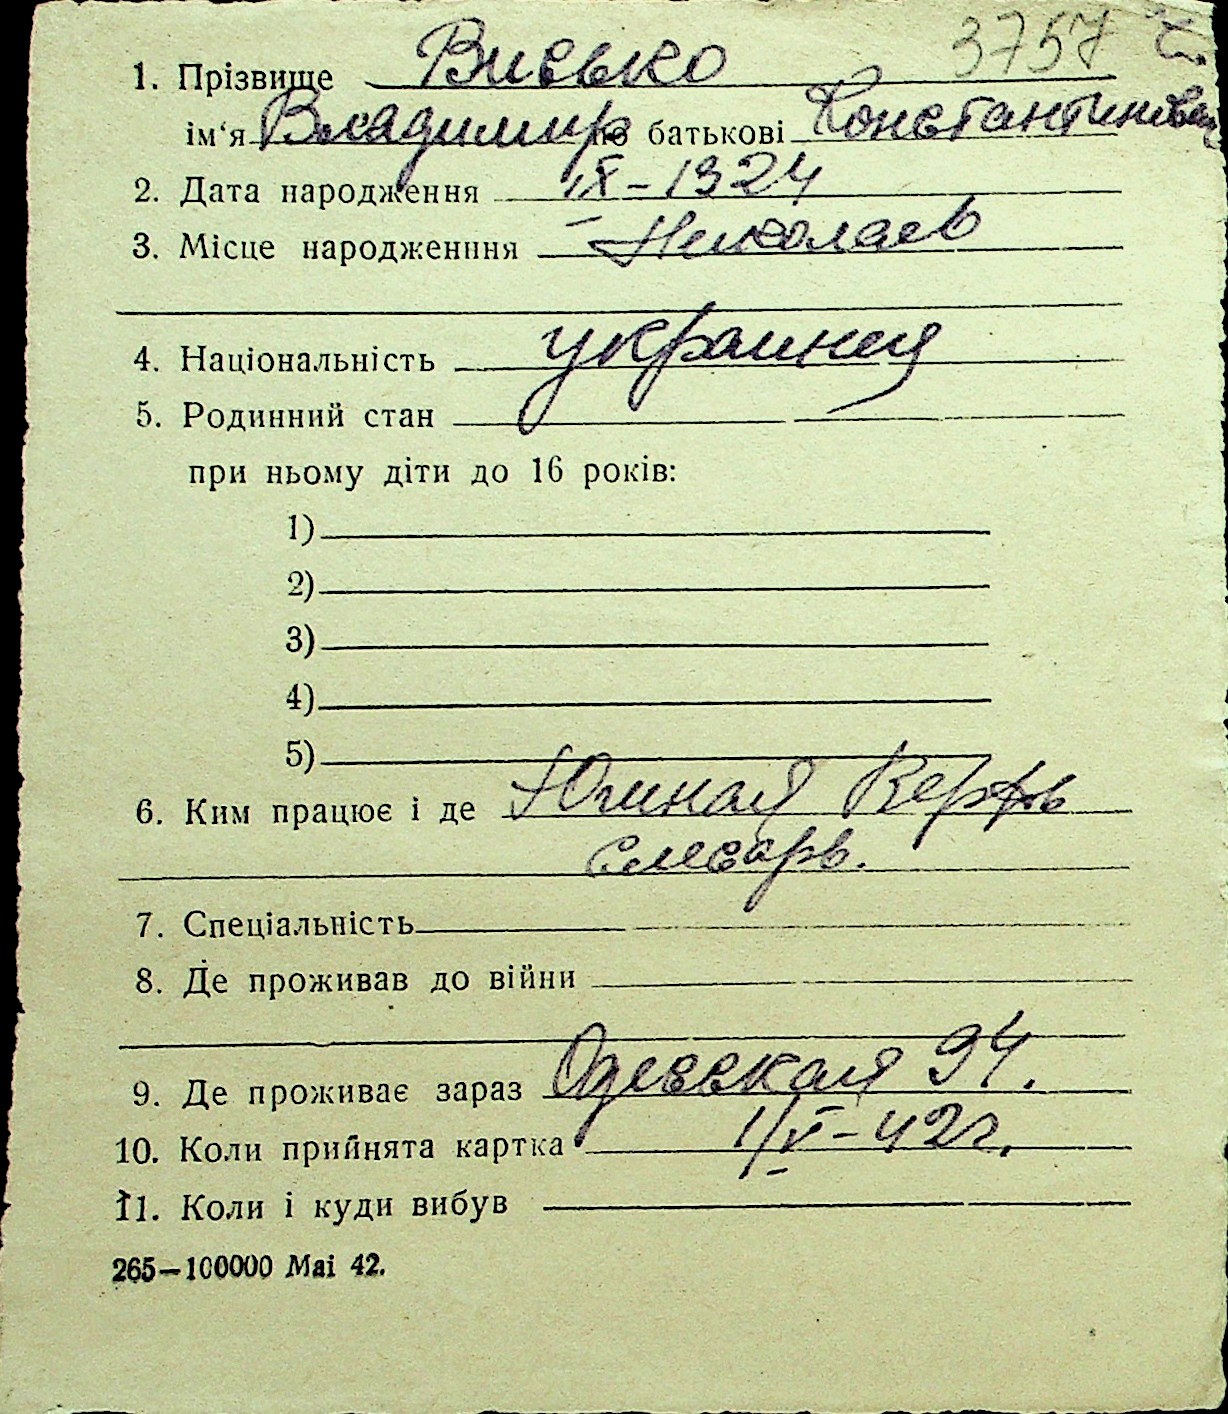 3757
1. Прізвище Висько
ім‘я Владимир по батькові Константинович
2. Дата народження IX – 1924
3. Місце народженння Николаев
4. Національність украинец
5. Родинний стан
при ньому діти до 16 років:
1)
2)
3)
4)
5)
6. Ким працює і де Южная Верфь
слесарь.
7. Спеціальність
8. Де проживав до війни
9. Де проживає зараз Одесская 94.
10. Коли прийнята картка 1/V – 42 г.
11. Коли і куди вибув
265—100000 Mai 42.